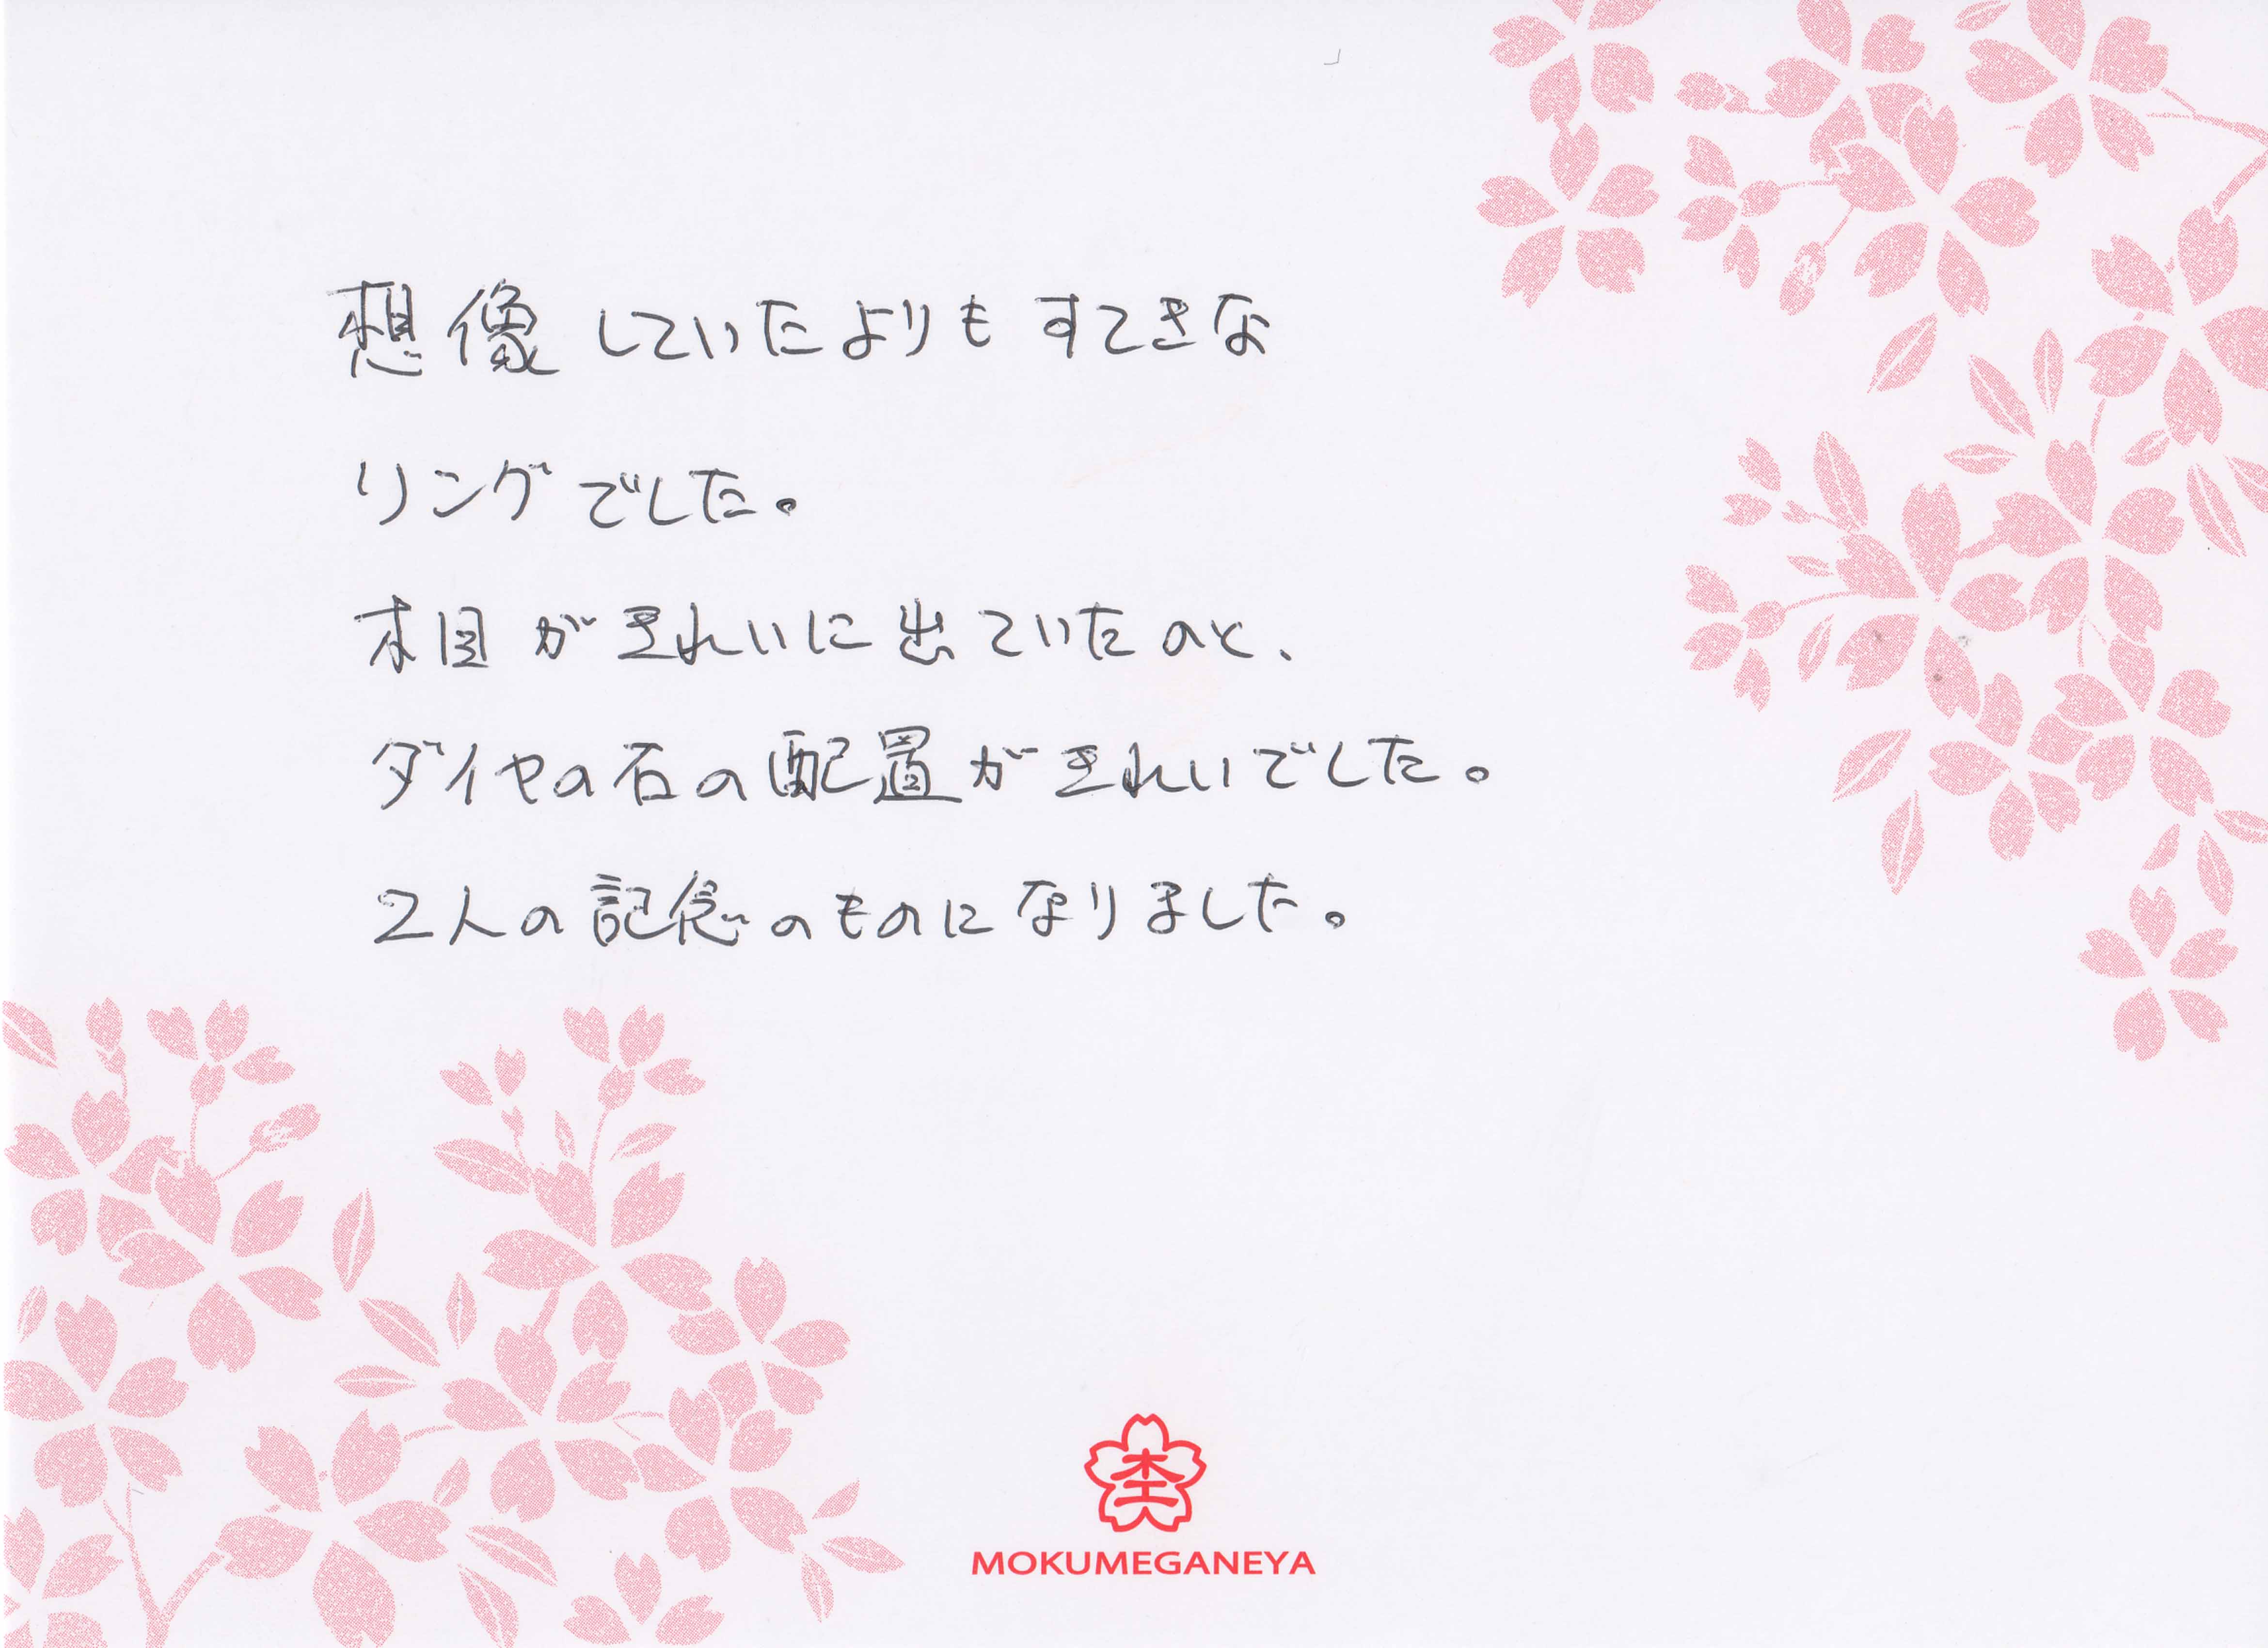 想像していたよりもすてきな
リングでした。
木目がきれいに出ていたのと、
ダイヤの石の配置がきれいでした。
2人の記念のものになりました。
杢
MOKUMEGANEYA